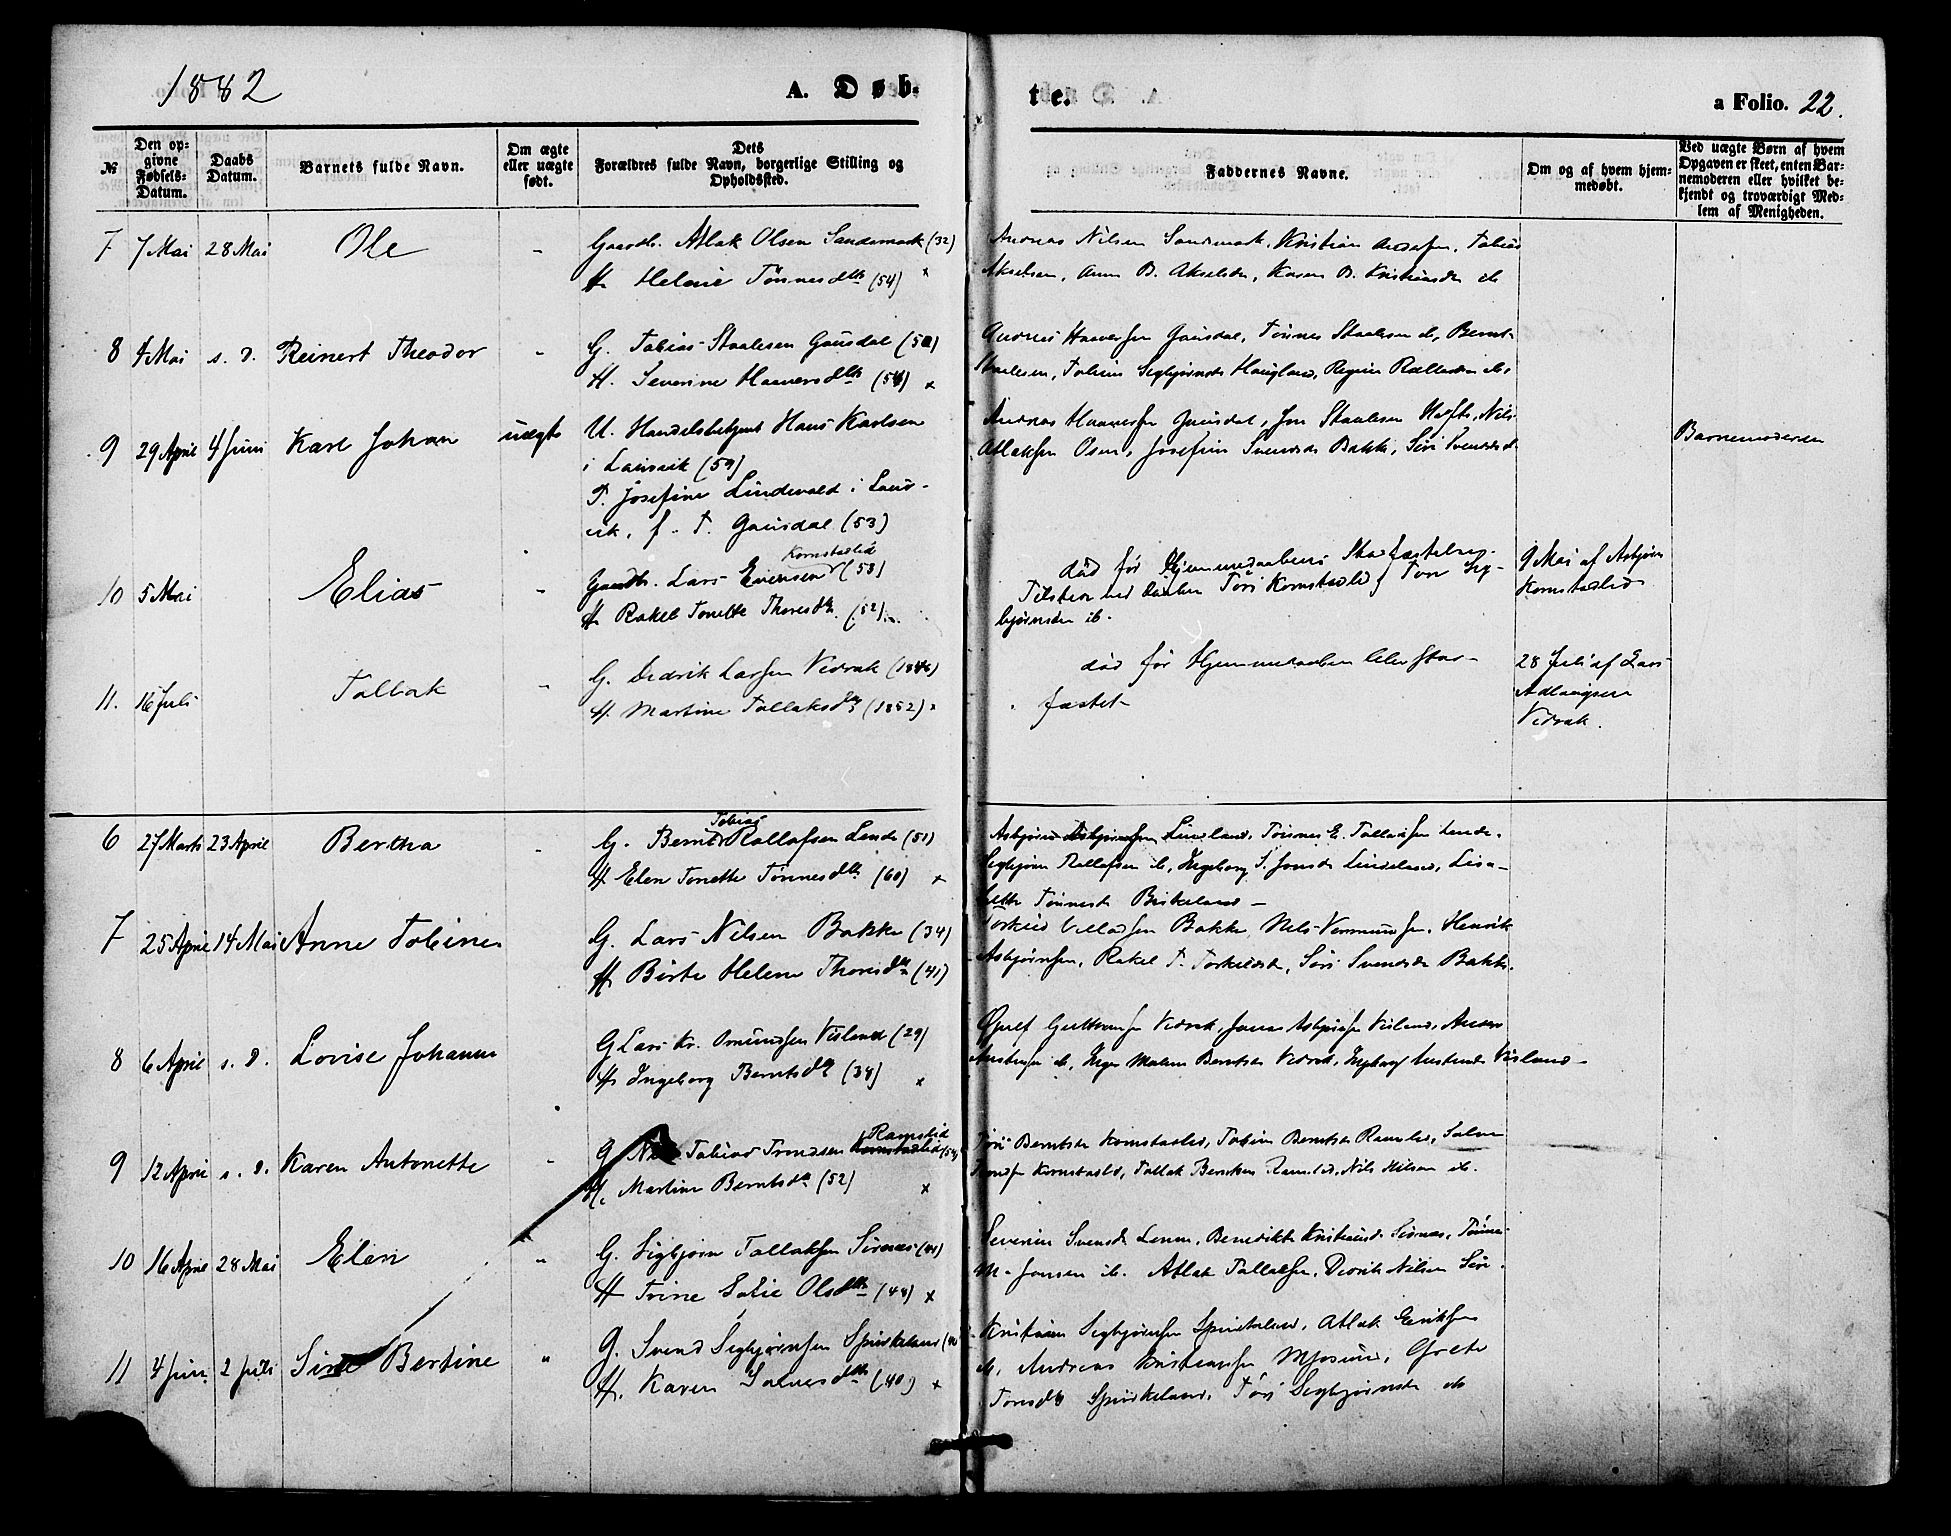 1882
A. Døb-
te.
a Folio. 22.
№
Den op-
givne
Fødsels-
Datum.
Daabs
Datum.
Barnets fulde Navn.
Om ægte
eller uægte
født.
Dets
Forældres fulde Navn, borgerlige Stilling og
Opholdssted.
Faddernes Navne.
Om og af hvem hjem-
medøbt.
Ved uægte Børn af hvem
Opgaven er skeet, enten Bar-
nemoderen eller hvilket be-
kjendt og troværdigt Med-
lem af Menigheden.
7 7 Mai 28 Mai Ole - Gaardb. Atlak Olsen Sandsmark (32)
H. Helene Tønnesdtr (54) x
Andreas Nilsen Sandsmark, Kristian Tobias
Akselsen, Anne B. Akselsdr, Karen B. Kristiansdr ib
8 4 Mai s. D. Reinert Theodor - G. Tobias Staalesen Gausdal
H. Severine Haaversdtr (54) x
Andreas Haaversen Gausdal, Tønnes Staalesen ib, Bernt
Staalesen, Sigbjørnsdr Haugland, Regine
9 29 April 4 Juni Karl Johan uægte U. Handelsbetjent Hans Karlsen
i Laurvik (59)
P. Josefine Lindevald i Laur-
vik, f. T. Gausdal (53)
Andreas Haaversen Gausdal, Jon Staalesen Nils
Atlaksen Osen, Josefine Svendsdr Bakke, Siri Svendsdr
Barnemoderen
10 5 Mai Elias - Gaardb. Lars Evensen Kornstadlid (53)
H. Rakel Tonette Thoresdtr. (52)
død før Hjemmedaabens Stadfæstelse.
Tilstede ved Daaben Tøri Kornstadlid, Tone Sig-
bjørnsdr ib.
9 Mai af Asbjørn
Kornstadlid
11. 16 Juli Tallak - G. Didrik Larsen Vidrak (1846)
H. Martine Tallaksdtr (1852)
død før Hjemmedaaben blev stad-
fæstet
28 Juli af Lars
Adlaugsen
Vidrak.
6 27 Marts 23 April Bertha - G. Bernt Tobias Rollafsen Lende (51)
H Elen Tonette Tønnesdtr (60) x
Asbjørn Asbjørnsen Lindland, Tønnes E. Tallaksen Lende,
Sigbjørn Rollafsen ib, Ingeborg S. Jonsdr Lindeland, Lisa-
beth Tønnesdr Birkeland
7 25 April 14 Mai Anne Tobine - G. Lars Nilsen Bakke (34)
H Birte Helene Thoresdtr (41)
Torkild Bakke, Nils Henrik
Asbjørnsen, Rakel T. Torkildsdr, Siri Svendsdr Bakke.
8 6 April s. D. Lovise Johanne G Lars Kr. Omundsen Visland (29)
H Ingeborg Berntsdtr (34) x
Guttormsen Vidrak, Jonas Asbjørnsen Visland,
ib, Inger Malene Berntsdr Vidrak, Ingeborg Visland
9 12 April s. D. Karen Antonette - G Tobias Trondsen Kornstadlid Ramslid (54)
H. Martine Berntsdtr (52) x
Tøri Berntsdr Kornstadlid, Tobine Berntsdr Ramslid, Salve
Trondsen Kornstadlid, Tallak Berntsen Ramslid, Nils Nilsen ib.
10 16 April 28 Mai Elen - G. Sigbjørn Tallaksen Sirnæs (41)
H Trine Sofie Olsdtr (44) x
Severine Svendsdr Lenne, Benedikte Kristiansdr Sirnæs, Tønnes
M. Jonsen ib. Atlak Tallaksen, Didrik Nilsen
11 4 Juni 2 Juli Sine Bertine - G. Svend Sigbjørnsen Spirkeland
H. Karen Salvesdtr (40) x
Kristian Sigbjørnsen Spirkeland, Atlak Eriksen
ib, Andreas Kristiansen Mjosund, Grete
Tønsdr Spirkeland, Tøri Sigbjørnsdr ib